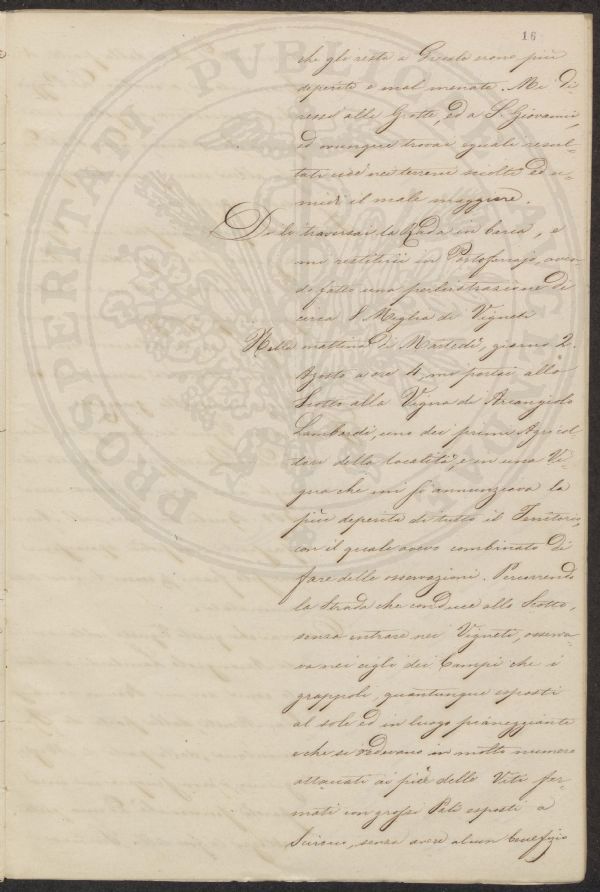 16
che gli resta a Greale erano più
deperite e mal menate. Mi di-
ressi alle Grotte, ed a S. Giovanni,
ed ovunque trovai eguali resul-
tati cioè nei terreni sciolti ed u-
midi il male maggiore.
Di lì traversai la Rada in barca, e
mi restituii in Portoferrajo, aven-
do fatto una perlustrazione di
circa 8 Miglia di Vigneti
Nella mattina di Martedì, giorno 2.
Agosto a ore 4, mi portai allo
Scotto alla Vigna di Arcangiolo
Lambardi, uno dei primi Agricol
tori della località, e in una Vi-
gna che mi si annunziava la
più deperita di tutto il Territorio,
con il quale avevo combinato di
fare delle osservazioni. Percorrendo
la Strada che conduce allo Scotto,
senza entrare nei Vigneti, osserva-
va nei cigli dei Campi che i
grappoli, quantunque esposti
al sole ed in luogo pianeggiante
e che si vedevano in molto numero
attaccati ai piè delle Viti fer-
mati con grossi Pali esposti a
Scirocco, senza avere alcun benefizio
PROSPERITATI PVBLICAE AVGENDAE